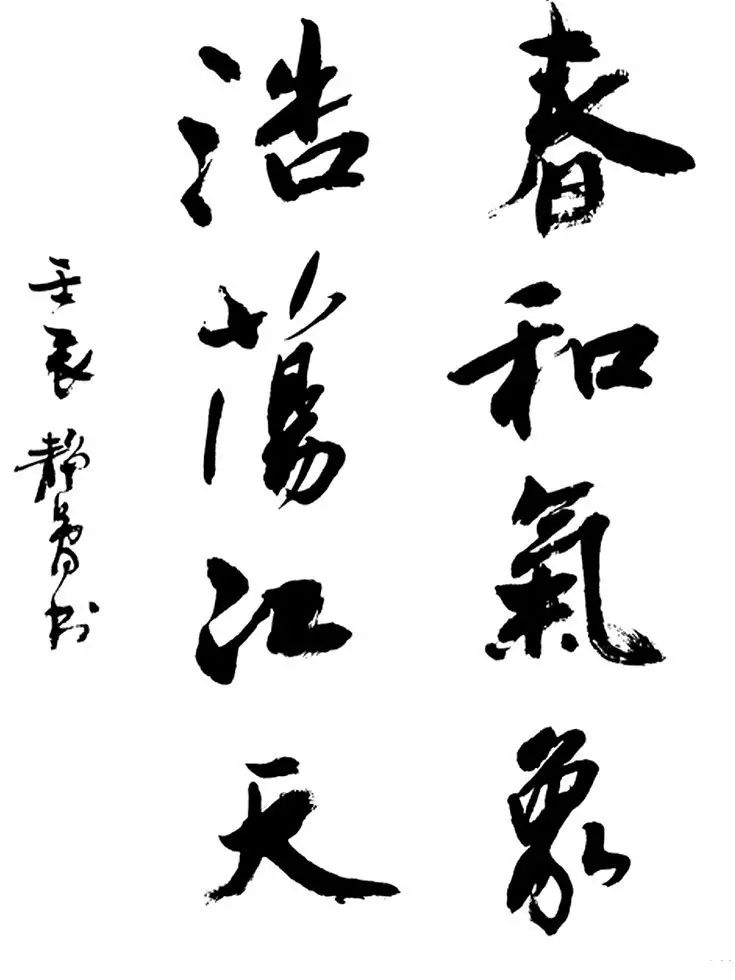 春和氣象
浩蕩江天
壬辰 静書